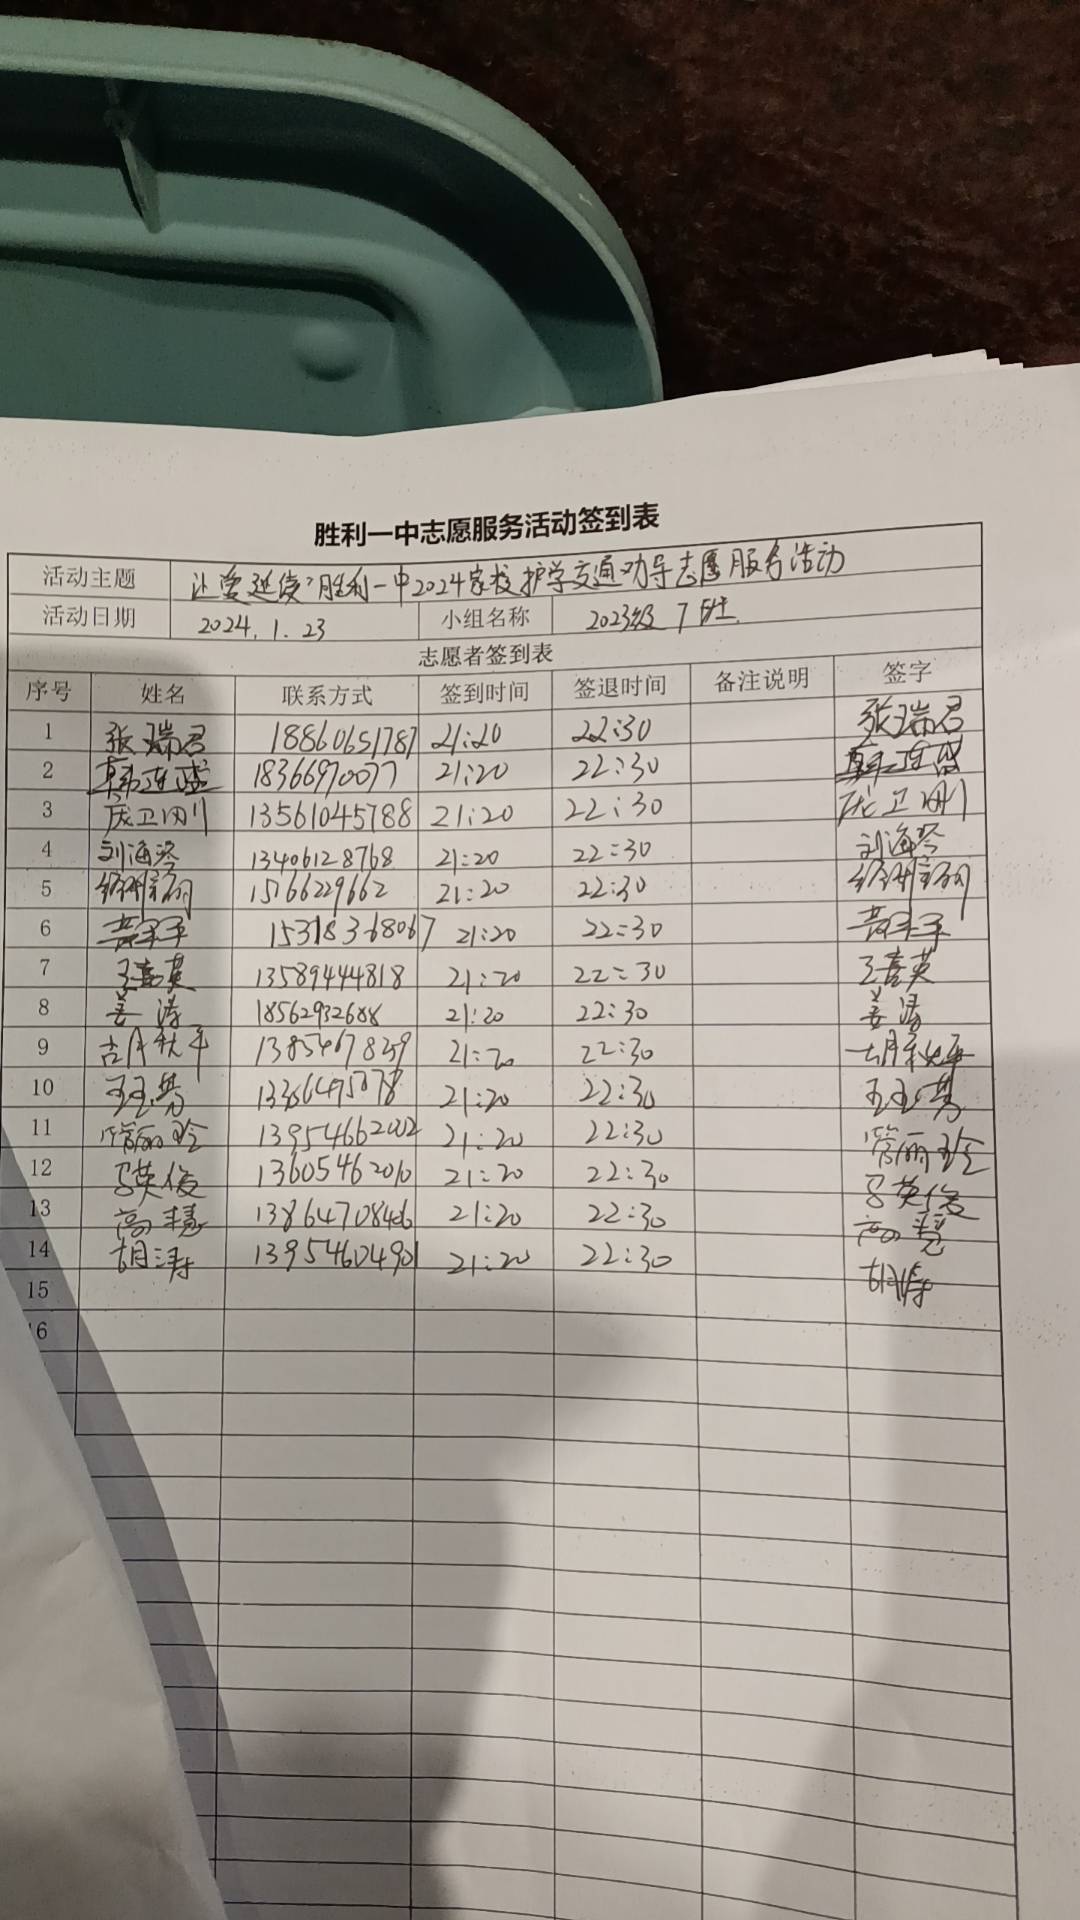 胜利一中志愿服务活动签到表
活动主题 让爱延续"胜利一中2024家校护学交通劝导志愿服务活动
活动日期 2024.1.23 小组名称 2023级7班.
志愿者签到表
序号 姓名 联系方式 签到时间 签退时间 备注说明 签字
1 张瑞君 18860651787 21:20 22:30 张瑞君
2 18366970077 21:20 22:30
3 庞卫刚 13561045788 21:20 22:30 庞卫刚
4 刘海琴 13406128768 21:20 22:30 刘海琴
5 15166229662 21:20 22:30
6 15318368067 21:20 22:30
7 王喜英 13589444818 21:20 22:30 王喜英
8 姜涛 18562932688 21:20 22:30 姜涛
9 胡秋平 21:20 22:30 胡秋平
10 21:20 22:30
11 管丽玲 13954662002 21:20 22:30 管丽玲
12 马英俊 13605462010 21:20 22:30 马英俊
13 高慧 13864708406 21:20 22:30 高慧
14 胡涛 13954604901 21:20 22:30 胡涛
15